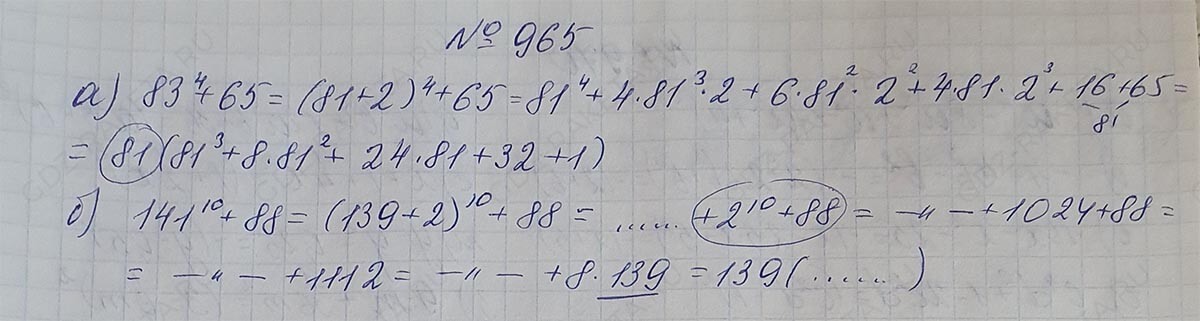 № 965.
а) 83⁴+65 = (81+2)⁴+65 = 81⁴+4·81³·2+6·81²·2²+4·81·2³+16+65 =
81
= 81(81³+8·81²+24·81+32+1)
б) 141¹⁰+88 = (139+2)¹⁰+88 = ...... +2¹⁰+88 = —〃— +1024+88 =
= —〃— +1112 = —〃— +8·139 = 139(......)